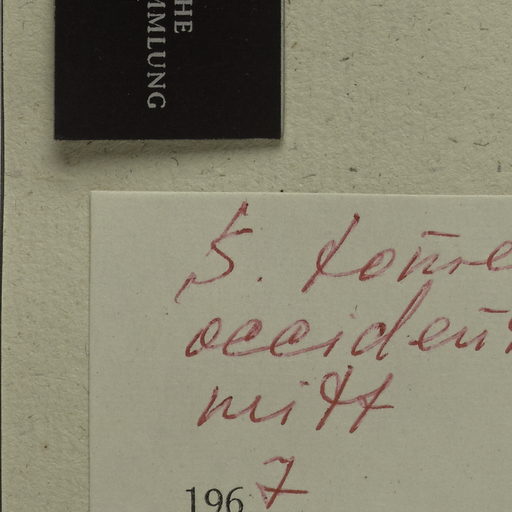 HE
MMLUNG
S.
occiden
mitt
1967